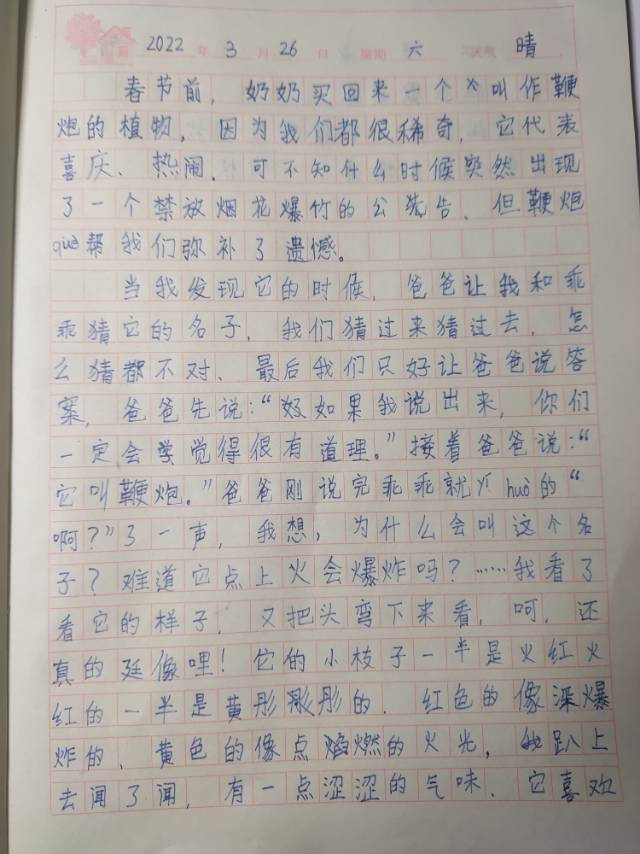 2022 年 3 月 26 日 星期 六 天气 晴
春节前，奶奶买回来一个叫作鞭
炮的植物，因为我们都很稀奇，它代表
喜庆、热闹，可不知什么时候突然出现
了一个禁放烟花爆竹的公告、但鞭炮
què帮我们弥补了遗憾。
当我发现它的时候，爸爸让我和乖
乖猜它的名子，我们猜过来猜过去，怎
么猜都不对、最后我们只好让爸爸说答
案，爸爸先说：“如果我说出来，你们
一定会学觉得很有道理。”接着爸爸说：“
它叫鞭炮。”爸爸刚说完乖乖就疒huò的“
啊？”了一声，我想，为什么会叫这个名
子？难道它点上火会爆炸吗？……我看了
看它的样子，又把头弯下来看，呵，还
真的廷像哩！它的小枝子一半是火红火
红的一半是黄彤彤的．红色的像深爆
炸的、黄色的像点燃的火光，我趴上
去闻了闻，有一点涩涩的气味．它喜欢